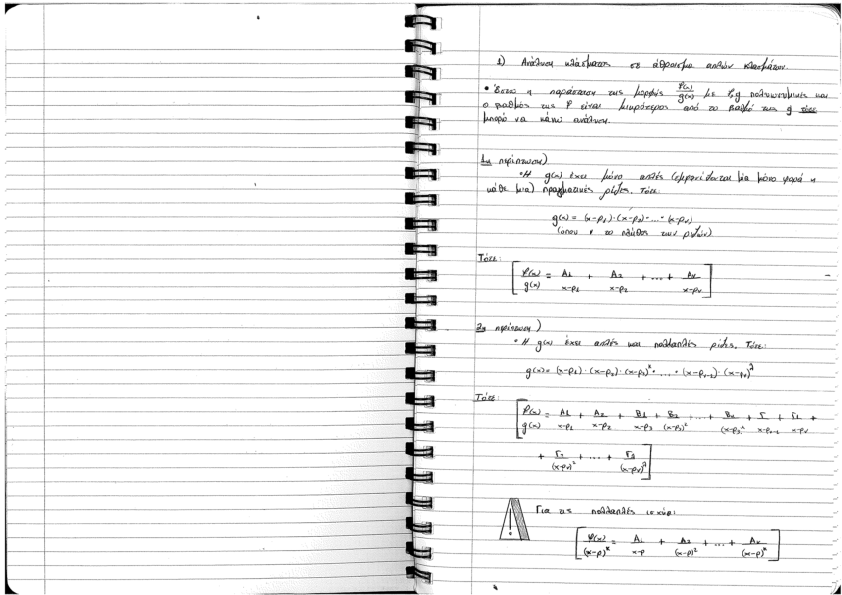 1) Ανάλυση κλάσματος σε άθροισμα απλών κλασμάτων.
• Έστω η παράσταση της μορφής φ(x)/g(x) με φ,g πολυωνυμικές και
ο βαθμός της φ είναι μικρότερος από το βαθμό της g τότε
μπορώ να κάνω ανάλυση.
1η περίπτωση)
• Η g(x) έχει μόνο απλές (εμφανίζονται μία μόνο φορά η
κάθε μια) πραγματικές ρίζες. Τότε:
g(x) = (x-ρ1)·(x-ρ2)·...·(x-ρν)
(όπου ν το πλήθος των ριζών)
Τότε:
[φ(x)/g(x) = A1/(x-ρ1) + A2/(x-ρ2) + ... + Aν/(x-ρν)]
2η περίπτωση)
• Η g(x) έχει απλές και πολλαπλές ρίζες. Τότε:
g(x) = (x-ρ1)·(x-ρ2)·(x-ρ3)^κ·...·(x-ρν-1)·(x-ρν)^λ
Τότε:
[φ(x)/g(x) = A1/(x-ρ1) + A2/(x-ρ2) + B1/(x-ρ3) + B2/(x-ρ3)² ... + Bκ/(x-ρ3)^κ + Γ/(x-ρν-1) + Γ1/(x-ρν) +
+ Γ2/(x-ρν)² + ... + Γλ/(x-ρν)^λ]
! Για τις πολλαπλές ισχύει:
[φ(x)/(x-ρ)^κ = A1/(x-ρ) + A2/(x-ρ)² + ... + Aκ/(x-ρ)^κ]